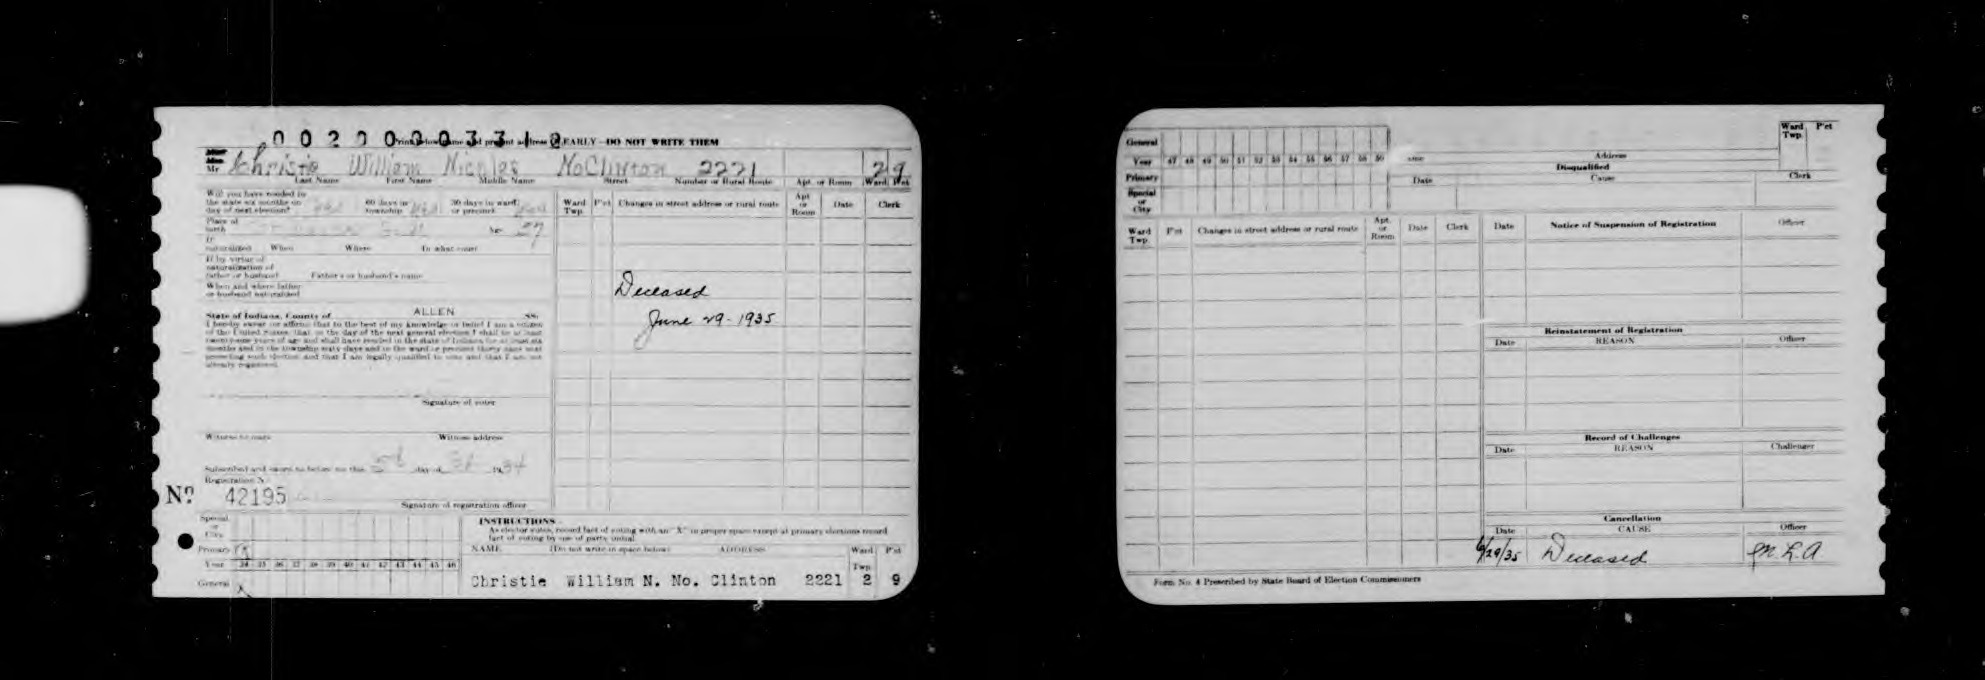 0 0 2 0 0 0 0 3 3 1
Print below name and present address CLEARLY—DO NOT WRITE THEM
Mr Christie William Nicolas NoClinton 2221 2 9
Last Name First Name Middle Name Street Number or Rural Route Apt. or Room Ward Pct
Will you have resided in
the state six months on
day of next election? 60 days in
township 30 days in ward
or precinct
Place of
birth 27
If
naturalized When Where In what court
If by virtue of
naturalization of
father or husband Father's or husband's name
When and where father
or husband naturalized
State of Indiana, County of ALLEN SS:
I hereby swear (or affirm) that to the best of my knowledge or belief I am a citizen
of the United States; that on the day of the next general election I shall be at least
twenty-one years of age and shall have resided in the state of Indiana for at least six
months and in the township sixty days and in the ward or precinct thirty days next
preceding such election and that I am legally qualified to vote and that I am not
already registered.
Signature of voter
Witness to mark Witness address
Subscribed and sworn to before me this day of 34
Registration N
Nº 42195
Signature of registration officer
Ward
Twp. P'ct Changes in street address or rural route Apt
or
Room Date Clerk
Deceased
June 29-1935
Special
or
City
Primary
Year 34 35 36 37 38 39 40 41 42 43 44 45 46
General X
INSTRUCTIONS
As elector votes, record fact of voting with an "X" in proper space except at primary elections record
fact of voting by use of party initial
NAME (Do not write in space below) ADDRESS Ward
Twp. P'ct
Christie William N. No. Clinton 2221 2 9
General
Year 47 48 49 50 51 52 53 54 55 56 57 58 59
Primary
Special
or
City
Address
Ward
Twp. P'ct
Disqualified
Date Cause Clerk
Ward
Twp. P'ct Changes in street address or rural route Apt.
or
Room Date Clerk
Date Notice of Suspension of Registration Officer
Reinstatement of Registration
Date REASON Officer
Record of Challenges
Date REASON Challenger
Cancellation
Date CAUSE Officer
6/29/35 Deceased M.L.A
Form No. 4 Prescribed by State Board of Election Commissioners